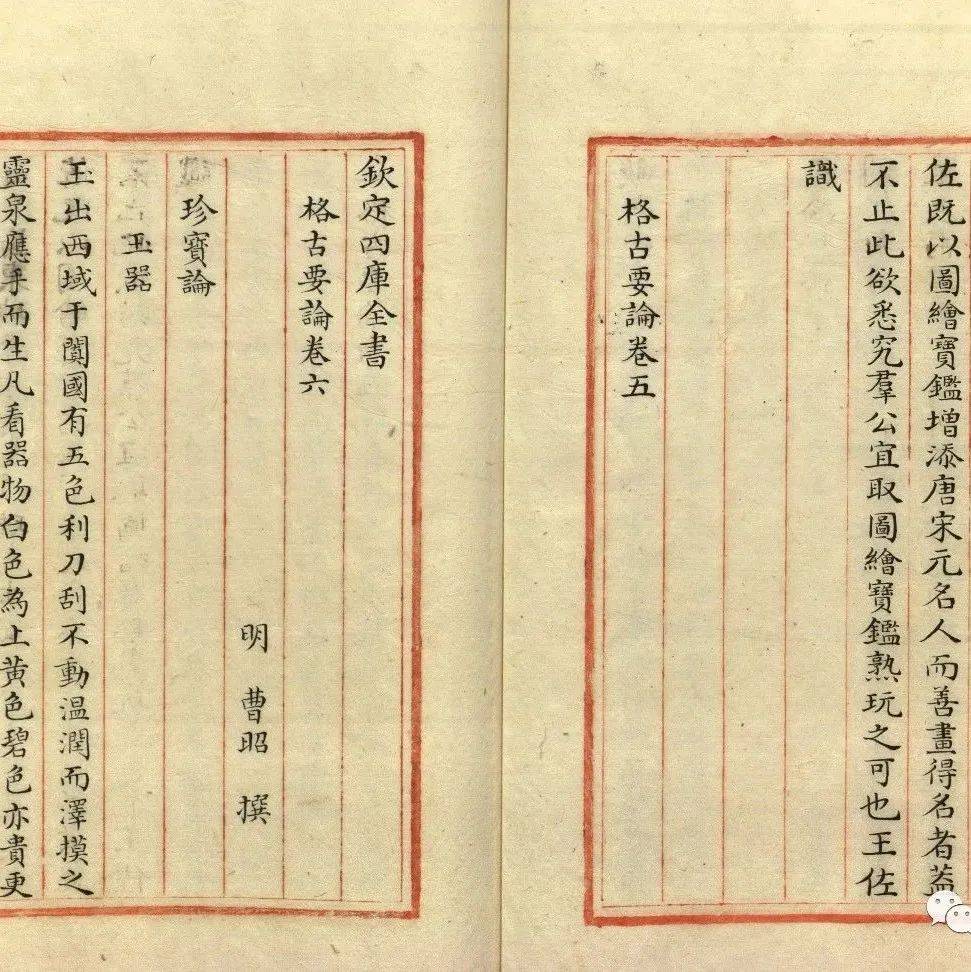 佐既以圖繪寶鑑增添唐宋元名人而善畫得名者葢
不止此欲悉究羣公宜取圖繪寶鑑熟玩之可也王佐
識
格古要論卷五
欽定四庫全書
格古要論卷六
明 曹昭 撰
珍寶論
玉器
玉出西域于闐國有五色利刀刮不動温潤而澤摸之
靈泉應手而生凡看器物白色為上黄色碧色亦貴更